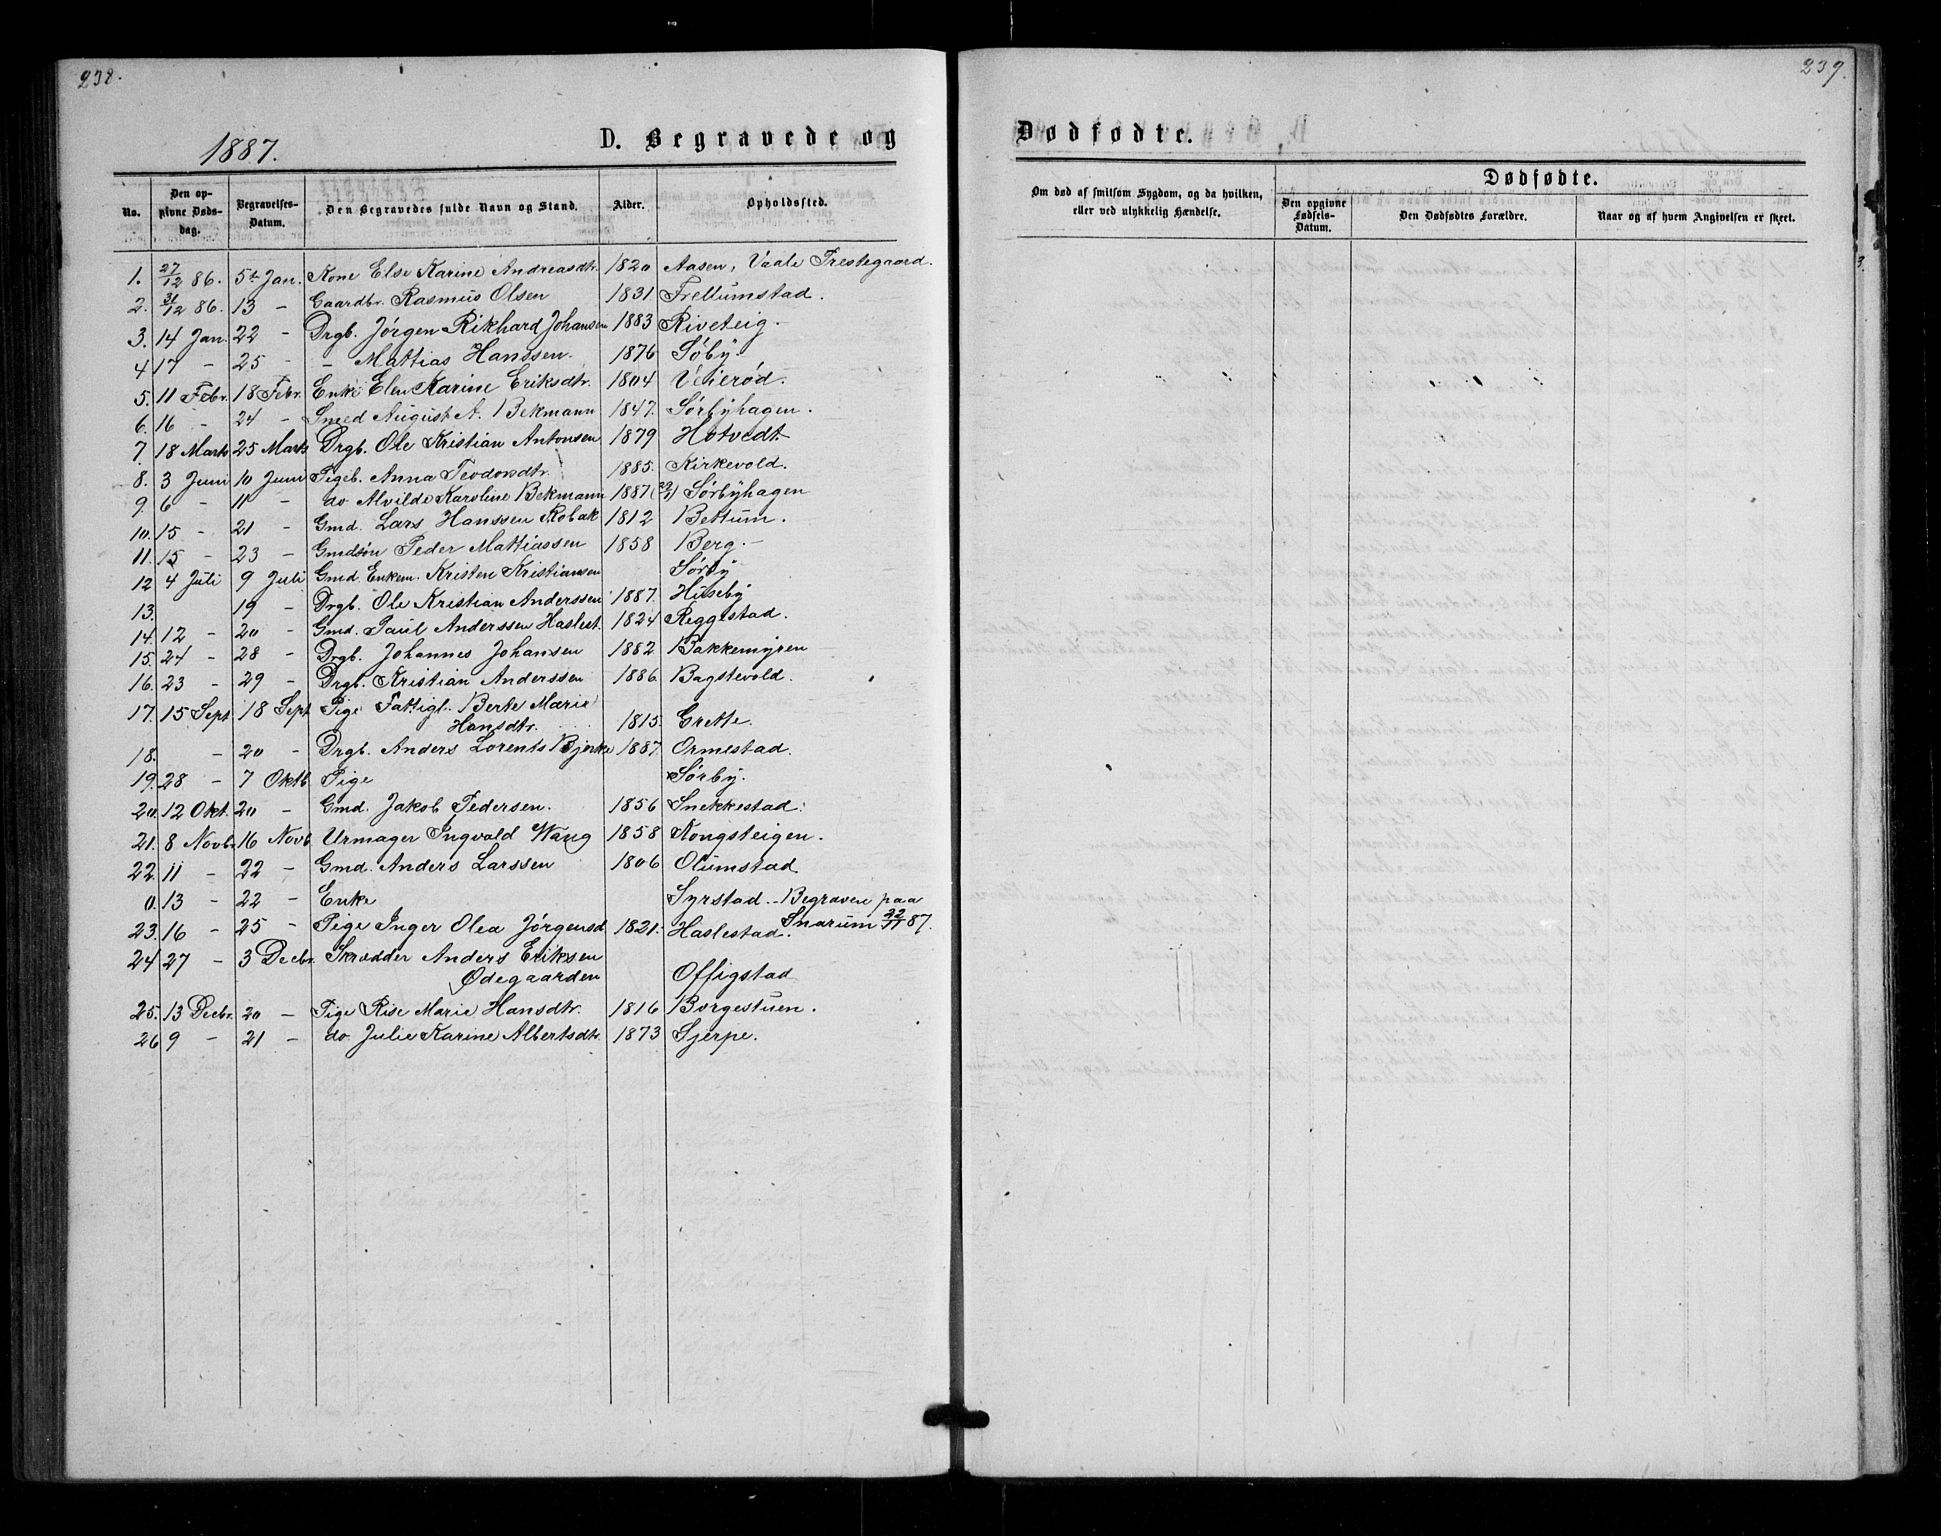 238.
1887.
D. Begravede og
No.
Den op-
givne Døds-
dag.
Begravelses-
Datum.
Den Begravedes fulde Navn og Stand.
Alder.
Opholdssted.
1. 27/12 86. 5te Jan. Kone Else Karine Andreasdtr. 1820 Aasen, Vaale Prestegaard.
2. 31/12 86. 13 - Gaardbr. Rasmus Olsen 1831 Frellumstad.
3. 14 Jan. 22 - Drgb. Jørgen Rikhard Johansen 1883 Riveteig.
4 17 - 25 - - Mattias Hanssen. 1876 Søby.
5. 11 Febr. 18 Febr. Enke Elen Karine Eriksdtr. 1804 Veierød.
6. 16 - 24 - Smed August A. Bekmann 1847. Sørbyhagen.
7. 18 Marts 25 Marts Drgb. Ole Kristian Antonsen 1879 Hotvedt
8. 3 Juni 10 Juni Pigeb. Anna Teodorsdtr. 1885. Kirkevold.
9. 6 - 11 - do Alvilde Karoline Bekmann 1887 Sørbyhagen
10. 15 - 21 - Gmd. Lars Hanssen Kobak 1812 Bettum.
11. 15 - 23 - Gmdsøn Peder Mattiassen 1858 Berg.
12 4 Juli 9 Juli Gmd. Enkem. Kristen Kristiansen Sørby
13. 19 - Drgb. Ole Kristian Anderssen 1887. Huseby
14. 12 - 20 - Gmd. Paul Anderssen Haslest. 1824 Reggestad.
15. 24 - 28 - Drgb. Johannes Johansen 1882 Bakkemyren
16. 23 - 29 - Drgb. Kristian Anderssen 1886. Bagstevold.
17. 15 Sept 18 Sept Pige Fattigl. Berte Marie
Hansdtr. 1815. Grette.
18. - 20 - Drgb. Anders Lorents Bjerke 1887. Ormestad.
19. 28 - 7 Oktb. Pige Sørby.
20. 12 Okt. 20 - Gmd. Jakob Pedersen. 1856 Snekkestad.
21. 8 Novbr. 16 Novb. Urmager Ingvald Wang 1858 Kongsteigen.
22. 11 - 22 - Gmd. Anders Larssen 1806 Olumstad
0. 13 - 22 - Enke Syrstad. - Begraven paa
Snarum 22/11 87.
23. 16 - 25 - Pige Inger Olea Jørgensd. 1821. Haslestad.
24 27 - 3 Decbr. Skrædder Anders Eriksen
Ødegaarden Offigstad
25. 13 Decbr. 20 - Pige Rise Marie Hansdtr. 1816 Borgestuen.
26 9 - 21 - do. Julie Karine Albertsdtr. 1873 Sjerpe.
239.
Dødfødte.
Om død af smitsom Sygdom, og da hvilken,
eller ved ulykkelig Hændelse.
Dødfødte.
Den opgivne
Fødsels-
Datum.
Den Dødfødtes Forældre.
Naar og af hvem Angivelsen er skeet.